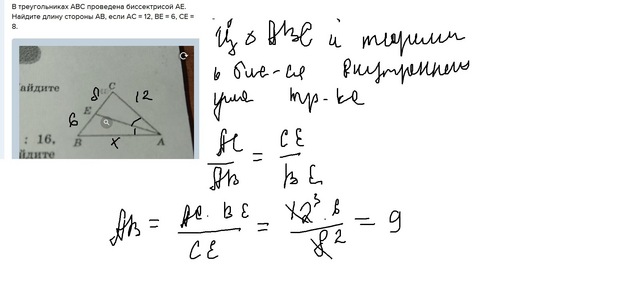 В треугольниках ABC проведена биссектрисой AE.
Найдите длину стороны AB, если AC = 12, BE = 6, CE =
8.
айдите
8 C 12
E
6
B x A
: 16,
йдите
Из △ ABC и теоремы
о бис-се внутреннего
угла тр-ка
AC/AB = CE/BE
AB = AC · BE/CE = 12³ · 6/8 2 = 9